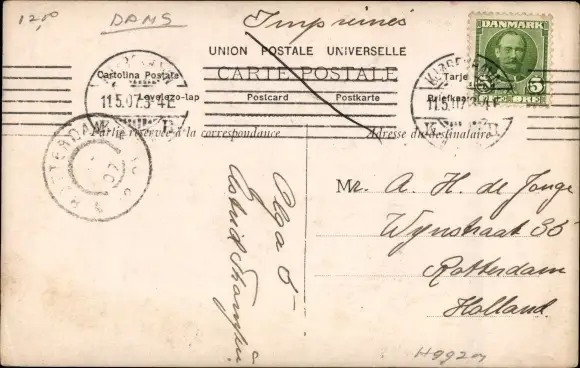 12,00
DAMS
Imprimés
UNION POSTALE UNIVERSELLE
CARTE POSTALE
Cartolina Postale
Levelezo-lap
Postcard
Postkarte
Tarje
Briefkaar
11.5.07.3-4E
11.5.07.3-4E
DANMARK
5
Partie réservée à la correspondance
Adresse du destinataire
ROTTERDAM
Olga 5
Mr. A. H. de Jonge
Wijnstraat 35
Rotterdam
Holland